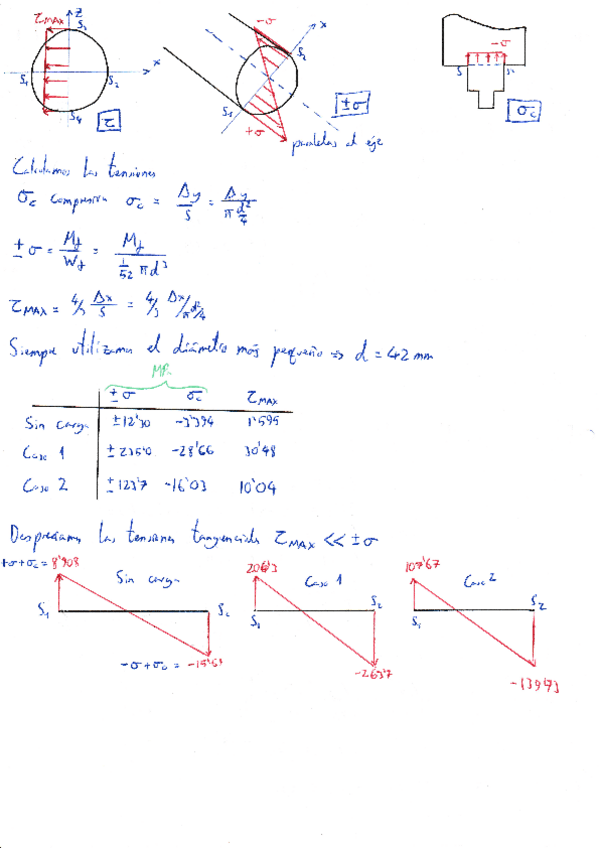 τMAX z S3 x
S1 S2
S4
τ
-σ x
S2
S1
+σ
±σ
paralelas al eje
-σ
S S'
σc
Calculamos las tensiones
σc compresiva σc = Δy/S = Δy/(π d²/4)
±σ = Mf/Wf = Mf/(1/32 π d³)
τMAX = 4/3 Δx/S = 4/3 Δx/(π d²/4)
Siempre utilizamos el diámetro más pequeño => d = 42 mm
MPa
±σ σc τMAX
Sin carga ±12'30 -3'394 1'595
Caso 1 ±235'0 -28'66 30'48
Caso 2 ±123'7 -16'03 10'04
Despreciamos las tensiones tangenciales τMAX << ±σ
+σ+σc = 8'908 Sin carga 206'3 Caso 1 107'67 Caso 2
S1 S2 S1 S2 S1 S2
-σ+σc = -15'69 -263'7 -139'73